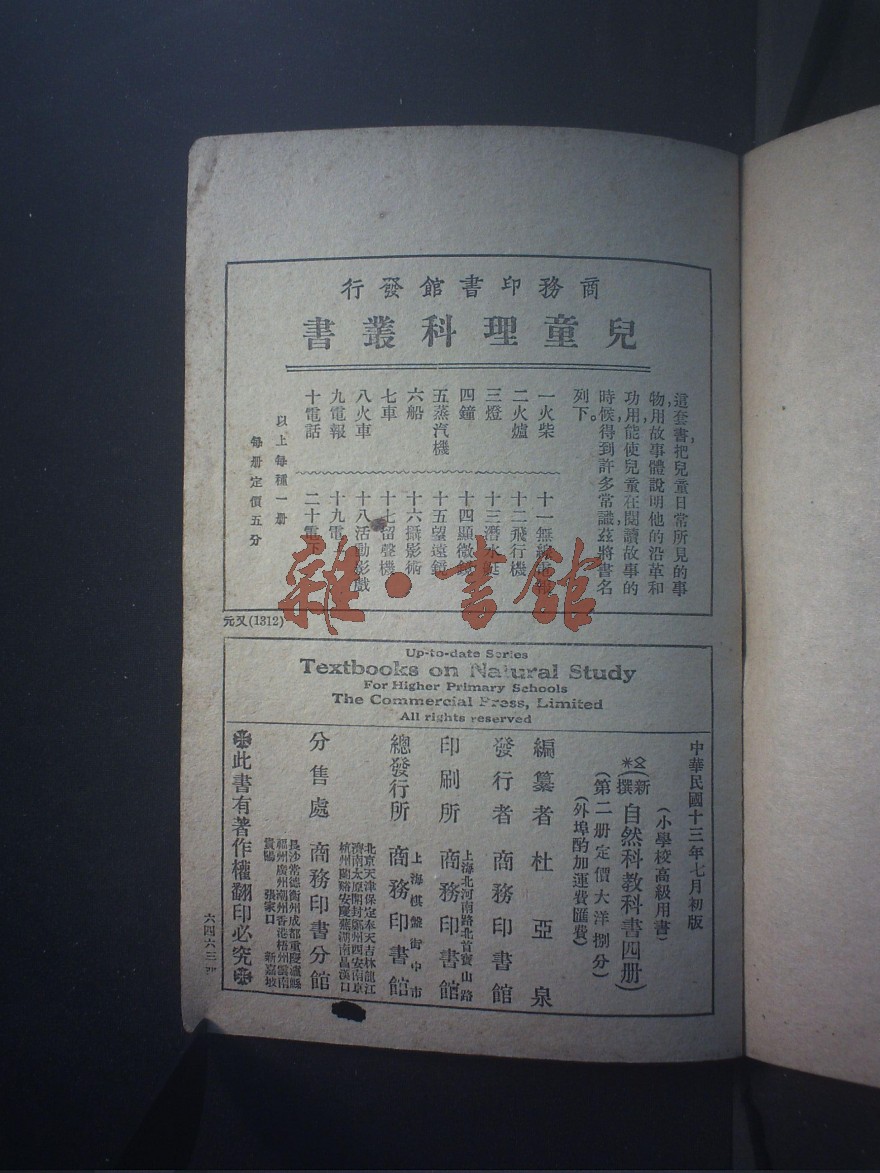 商務印書館發行
兒童理科叢書
這套書,把兒童日常所見的事
物,用故事體說明他的沿革和
功用,能使兒童在閱讀故事的
時候,得到許多常識,茲將書名
列下。
一火柴
二火爐
三燈
四鐘
五蒸汽機
六船
七車
八火車
九電報
十電話
十一無線電報
十二飛行機
十三潛水艇
十四顯微鏡
十五望遠鏡
十六攝影術
十七留聲機
十八活動影戲
十九電
二十電
以上每種一册
每册定價五分
元又(1312)
雜·書館
Up-to-date Series
Textbooks on Natural Study
For Higher Primary Schools
The Commercial Press, Limited
All rights reserved
中華民國十三年七月初版
(小學校高級用書)
(新撰)自然科教科書四册)
(第二册定價大洋捌分)
(外埠酌加運費匯費)
編纂者 杜亞泉
發行者 商務印書館
印刷所 上海北河南路北首寶山路 商務印書館
總發行所 上海棋盤街中市 商務印書館
分售處 北京天津保定奉天吉林龍江
濟南太原開封鄭州西安南京
杭州蘭谿安慶蕪湖南昌漢口
商務印書分館
長沙常德衡州成都重慶瀘縣
福州廣州潮州香港梧州雲南
貴陽 張家口 新嘉坡
※此書有著作權翻印必究※
六四六三